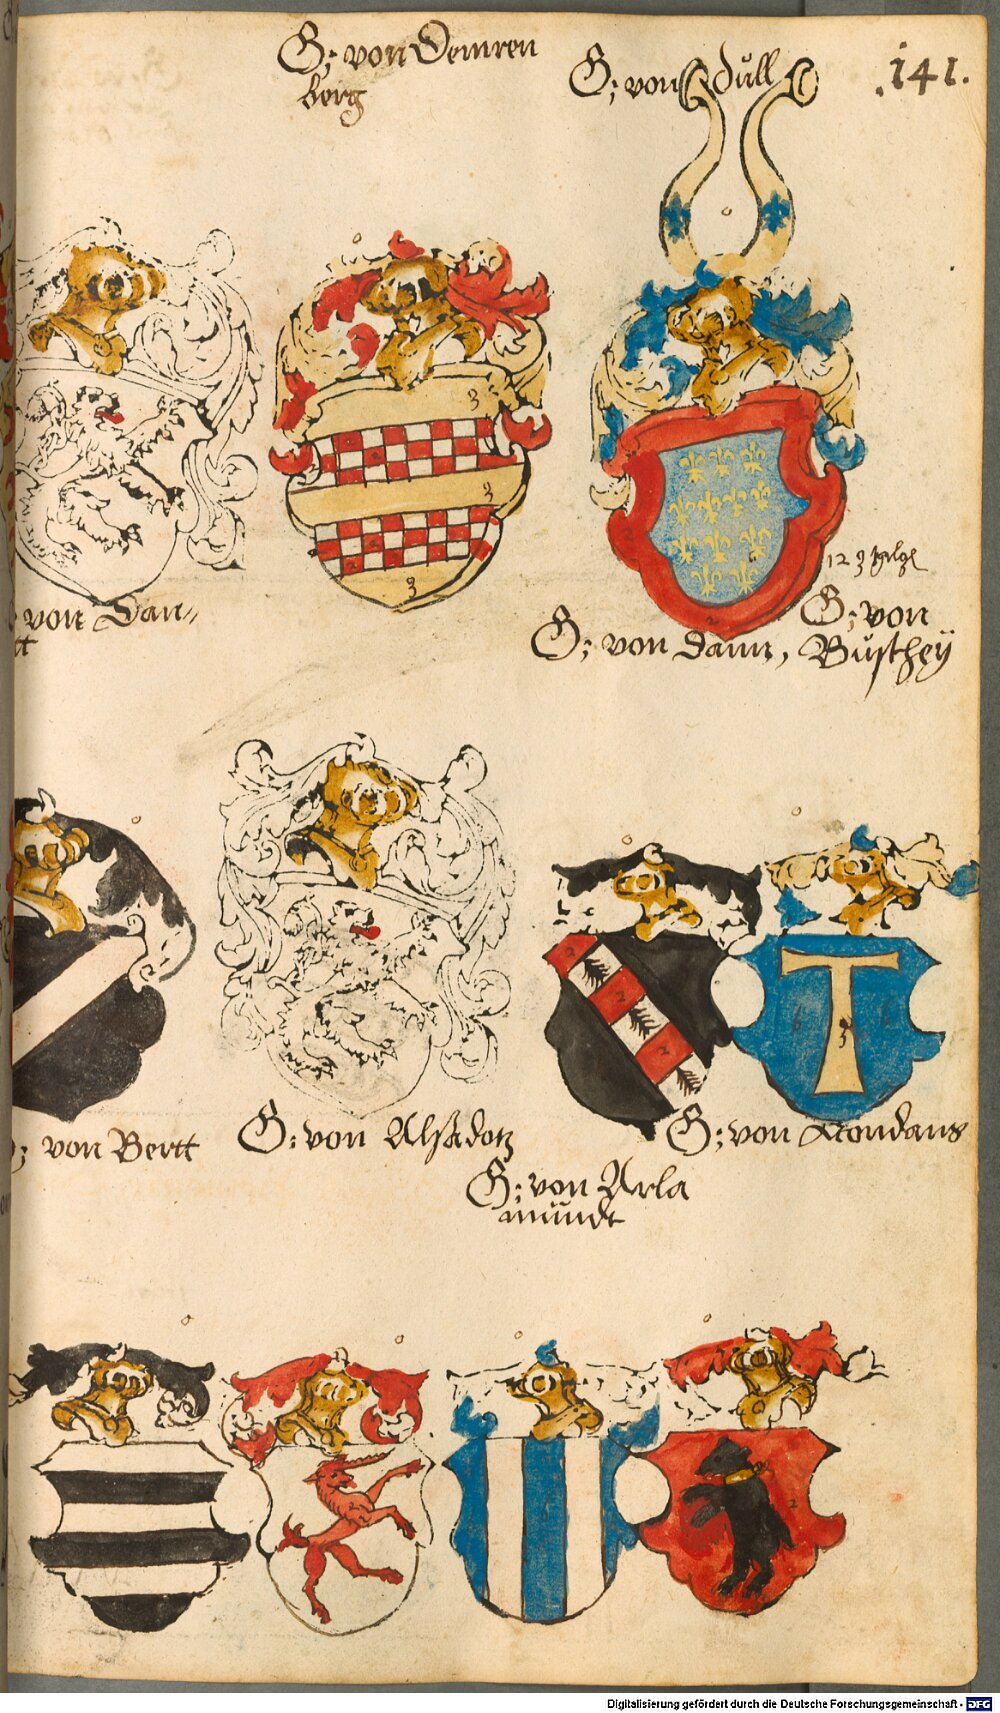 G; von Demren
berg
G; von düll
.141.
3
3
3
2
12 3 gilgē
von Dan,,
tt
G; von dann,
G; von
Bustheÿ
2
2
2
3
6
6
; von Bertt
G: von Alsadotz
G; von Nordans
G; von Arla
mundt
2
Digitalisierung gefördert durch die Deutsche Forschungsgemeinschaft - DFG